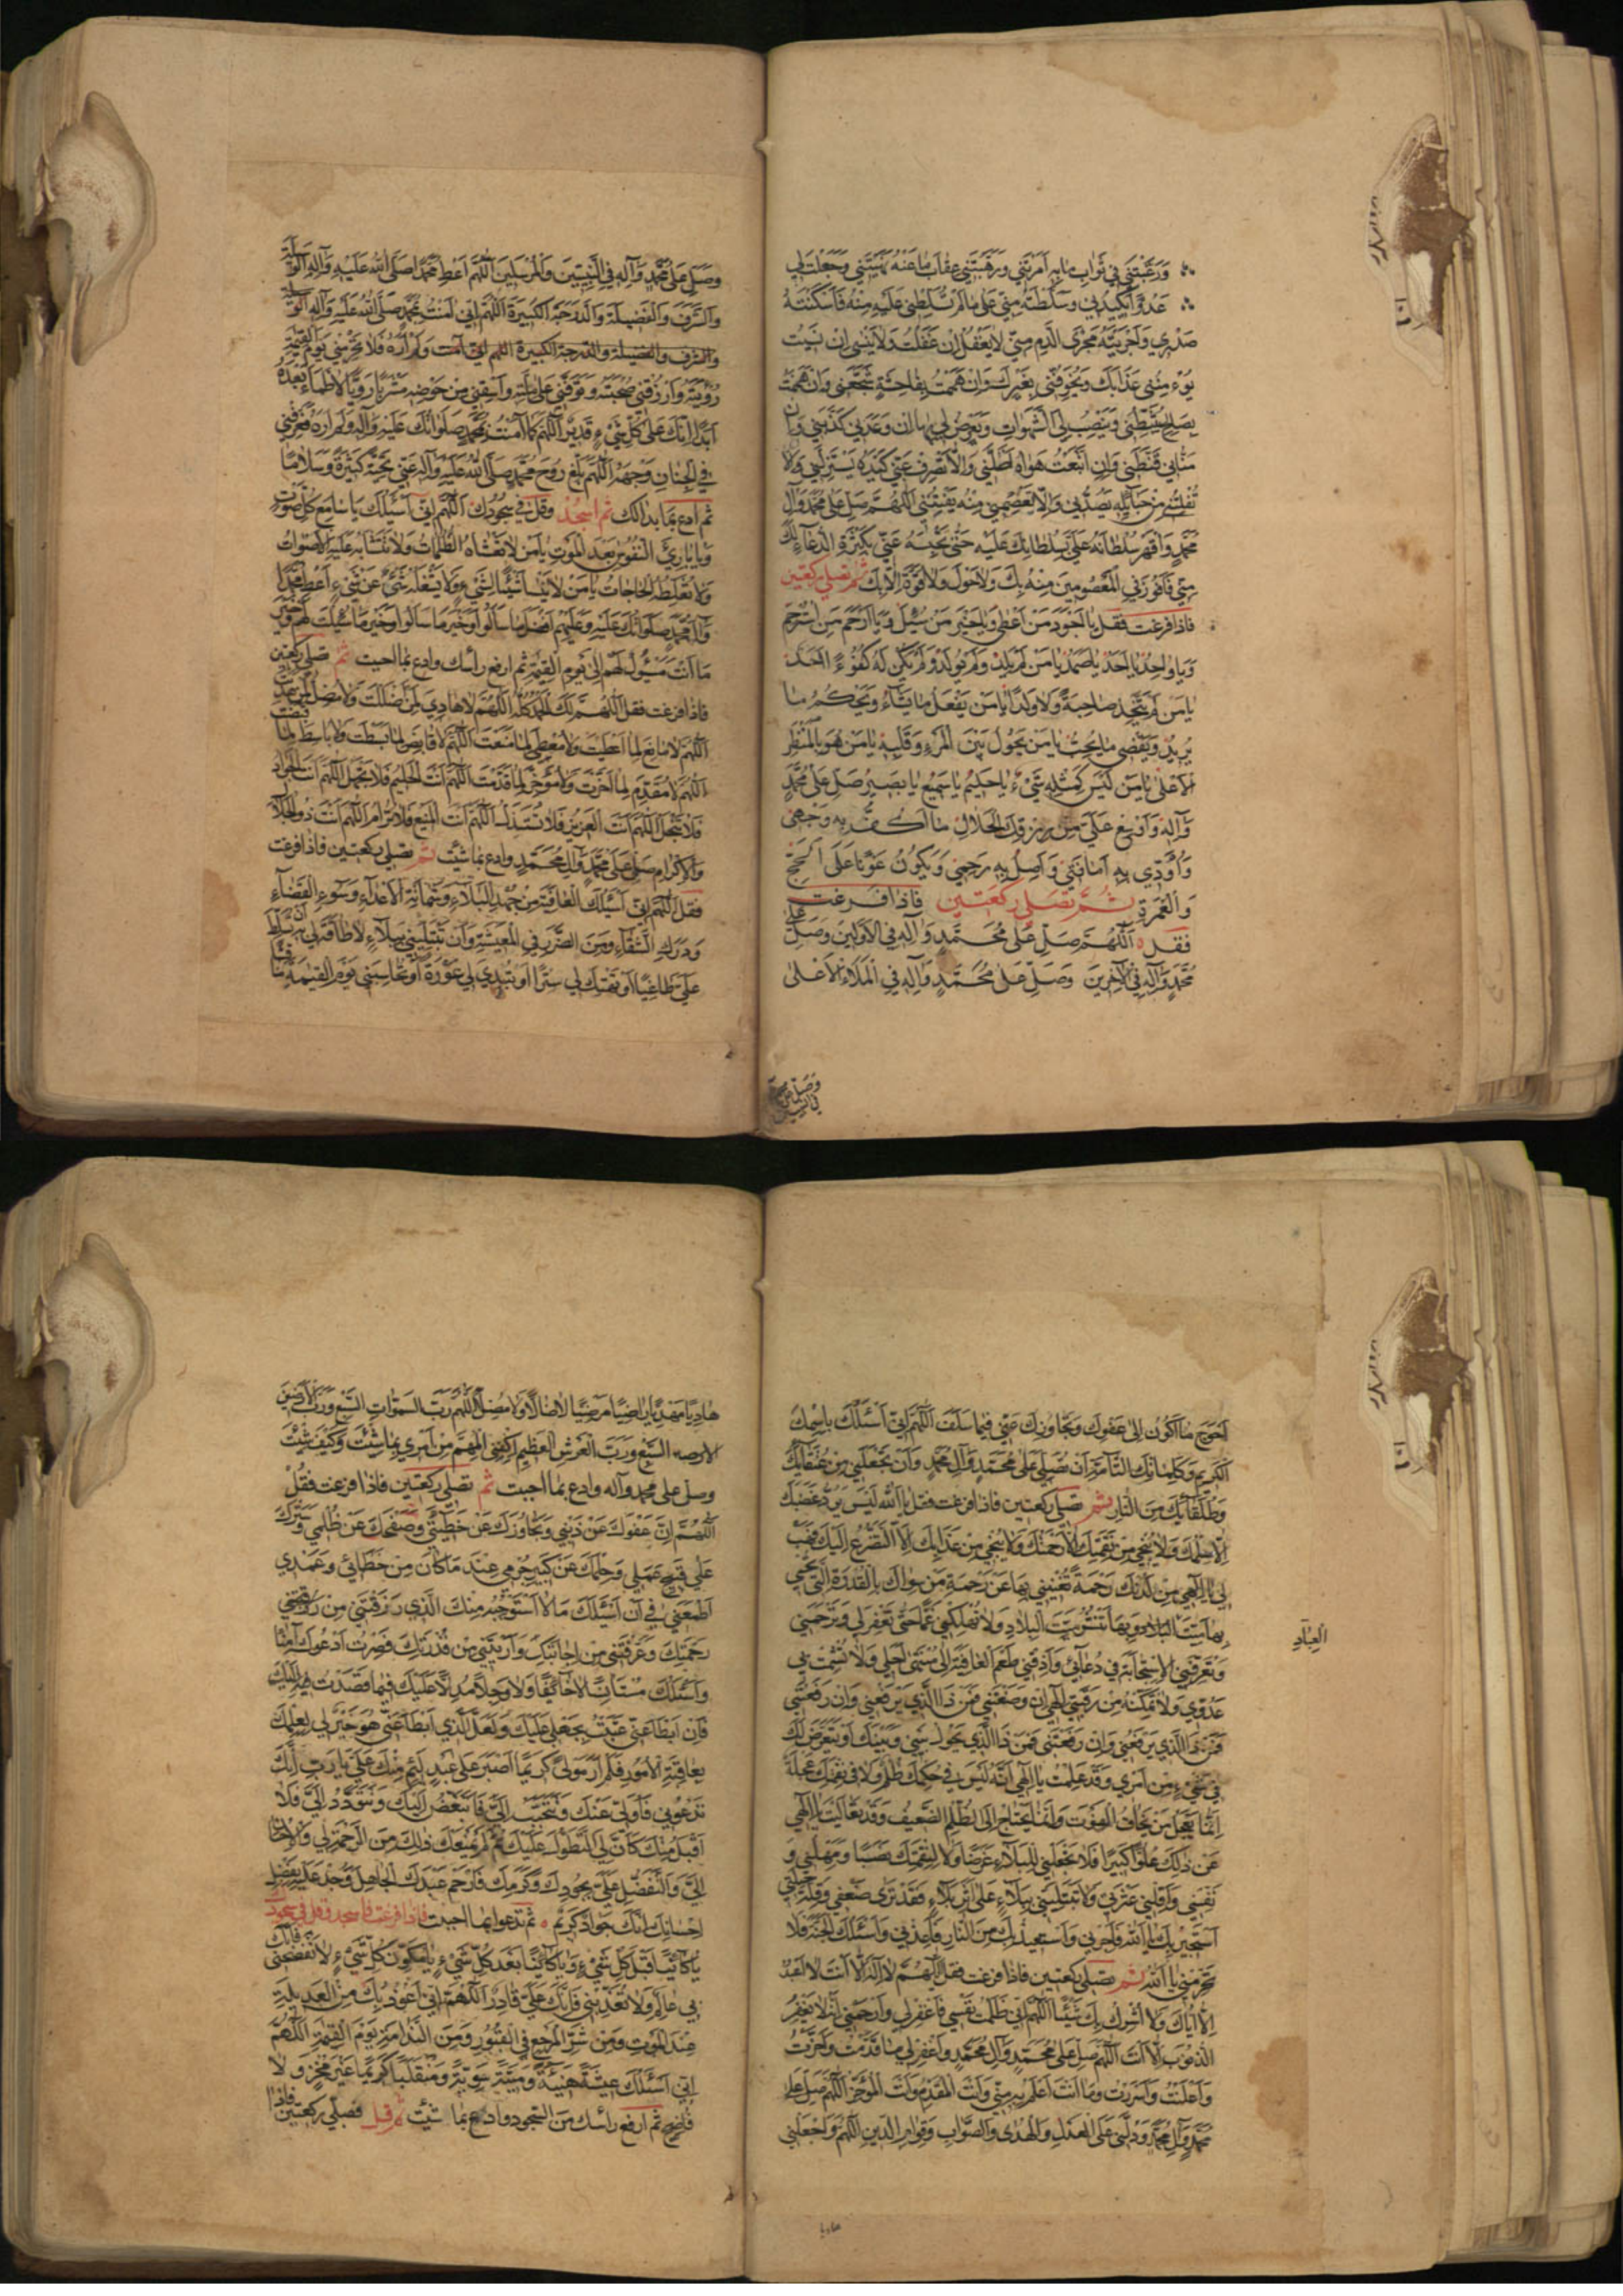 ورغبتني في ثواب ما به امرتني ورهبتني عقاب ما عنه نهيتني وجعلت لي
عدوا يكيدني وسلطته مني على ما لم تسلطني عليه منه فاسكنته
صدري واجريته مجرى الدم مني لا يغفل ان غفلت ولا ينسى ان نسيت
يؤمنني عذابك ويخوفني بغيرك وان هممت بفاحشة شجعني وان هممت
بصالح يثبطني وينصب لي الشهوات ويعرض لي بها ان وعدني كذبني وان
مناني قنطني وان اتبعت هواه اضلني والا تصرف عني كيده يستزلني والا
تفلتني من حبائله يصدني والا تعصمني منه يفتنني اللهم صل على محمد وآل
محمد واقهر سلطانه علي بسلطانك عليه حتى تحبسه عني بكثرة الدعاء لك
مني فافوز في المعصومين منه بك ولا حول ولا قوة الا بك ثم تصلي ركعتين
فاذا فرغت فقل يا اجود من اعطى ويا خير من سئل ويا ارحم من استرحم
ويا واحد يا احد يا صمد يا من لم يلد ولم يولد ولم يكن له كفوءا احد
يا من لم يتخذ صاحبة ولا ولدا يا من يفعل ما يشاء ويحكم ما
يريد ويقضي ما يحب يا من يحول بين المرء وقلبه يا من هو بالمنظر
الاعلى يا من ليس كمثله شيء يا حكيم يا سميع يا بصير صل على محمد
وآله واوسع علي من رزقك الحلال ما اكف به وجهي
واؤدي به امانتي واصل به رحمي ويكون عونا على الحج
والعمرة ثم تصلي ركعتين فاذا فرغت
فقل اللهم صل على محمد وآله في الاولين وصل على
محمد وآله في الآخرين وصل على محمد وآله في الملاء الاعلى
وصل على محمد وآله في النبيين والمرسلين اللهم اعط محمدا صلى الله عليه وآله الوسيلة
والشرف والفضيلة والدرجة الكبيرة اللهم اني آمنت بمحمد صلى الله عليه وآله
والشرف والفضيلة والدرجة الكبيرة اللهم اني آمنت ولم اره فلا تحرمني يوم القيمة
رؤيته وارزقني صحبته وتوفني على ملته واسقني من حوضه مشربا رويا لا اظماء بعده
ابدا انك على كل شيء قدير اللهم كما آمنت بمحمد صلواتك عليه وآله ولم اره فعرفني
في الجنان وجهه اللهم بلغ روح محمد صلى الله عليه وآله عني تحية كثيرة وسلاما
ثم ادع بما بدا لك ثم اسجد وقل في سجودك اللهم اني اسئلك يا سامع كل صوت
ويا بارئ النفوس بعد الموت يا من لا تغشاه الظلمات ولا تتشابه عليه الاصوات
ولا تغلطه الحاجات يا من لا ينسا شيئا لشيء ولا يشغله شيء عن شيء اعط محمدا
وآل محمد صلواتك عليه وعليهم افضل ما سالوا وخير ما سالوا وخير ما سئلت لهم وخير
ما انت مسؤل لهم الى يوم القيمة ثم ارفع راسك وادع بما احببت ثم تصلي ركعتين
فاذا فرغت فقل اللهم لك الحمد كله اللهم لا هادي لمن اضللت ولا مضل لمن هديت
اللهم لا مانع لما اعطيت ولا معطي لما منعت اللهم لا قابض لما بسطت ولا باسط لما قبضت
اللهم لا مقدم لما اخرت ولا مؤخر لما قدمت اللهم انت الحليم فلا تجهل اللهم انت الجواد
فلا تبخل اللهم انت العزيز فلا تستذل اللهم انت المنيع فلا ترام اللهم انت ذو الجلال
والاكرام صل على محمد وآل محمد وادع بما شئت ثم تصلي ركعتين فاذا فرغت
فقل اللهم اني اسئلك العافية من جهد البلاء وشماتة الاعداء وسوء القضاء
ودرك الشقاء ومن الضرر في المعيشة وان تبتليني ببلاء لا طاقة لي به او تسلط
علي طاغيا او تهتك لي سترا او تبدي لي عورة او تحاسبني يوم القيمة
وصل على محمد
في النبيين
احوج ما اكون الى عفوك وتجاوزك عني فيما سلف اللهم اني اسئلك باسمك
الكريم وكلماتك التامة ان تصلي على محمد وآل محمد وان تجعلني من عتقائك
وطلقائك من النار ثم تصلي ركعتين فاذا فرغت فقل يا الله ليس يرد غضبك
الا حلمك ولا ينجي من نقمتك الا رحمتك ولا ينجي من عذابك الا التضرع اليك فهب
لي يا الهي من لدنك رحمة تغنيني بها عن رحمة من سواك بالقدرة التي تحيي
بها ميت البلاد وبها تنشر ميت البلاد ولا تهلكني غما حتى تغفر لي وترحمني
العباد
وتعرفني الاستجابة في دعائي واذقني طعم العافية الى منتهى اجلي ولا تشمت بي
عدوي ولا تمكنه من رقبتي الهي ان وضعتني فمن ذا الذي يرفعني وان رفعتني
فمن ذا الذي يرفعني وان رفعتني فمن ذا الذي يحول بيني وبينك او يتعرض لك
في شيء من امري وقد علمت يا الهي انه ليس في حكمك ظلم ولا في نقمتك عجلة
انما يعجل من يخاف الفوت وانما يحتاج الى الظلم الضعيف وقد تعاليت يا الهي
عن ذلك علوا كبيرا فلا تجعلني للبلاء غرضا ولا لنقمتك نصبا ومهلني و
نفسني واقلني عثرتي ولا تبتليني ببلاء على اثر بلاء فقد ترى ضعفي وقلة حيلتي
استجير بك يا الله فاجرني واستعيذ بك من النار فاعذني واسئلك الجنة فلا
تحرمني يا الله ثم تصلي ركعتين فاذا فرغت فقل اللهم لا اله الا انت لا اعبد
الا اياك ولا اشرك بك شيئا اللهم اني ظلمت نفسي فاغفر لي وارحمني انه لا يغفر
الذنوب الا انت اللهم صل على محمد وآل محمد واغفر لي ما قدمت واخرت
واعلنت واسررت وما انت اعلم به مني وانت المقدم وانت المؤخر اللهم صل على
محمد وآل محمد ودلني على العدل والهدى والصواب وقوام الدين اللهم واجعلني
هاديا
هاديا مهديا راضيا مرضيا لا ضالا ولا مضلا اللهم رب السموات السبع ورب الارضين
السبع ورب العرش العظيم اكفني المهم من امري بما شئت وكيف شئت
وصل على محمد وآله وادع بما احببت ثم تصلي ركعتين فاذا فرغت فقل
اللهم ان عفوك عن ذنبي وتجاوزك عن خطيئتي وصفحك عن ظلمي وسترك
على قبيح عملي وحلمك عن كبير جرمي عند ما كان من خطائي وعمدي
اطمعني في ان اسئلك ما لا استوجبه منك الذي رزقتني من
رحمتك وعرفتني من اجابتك واريتني من قدرتك فصرت ادعوك آمنا
واسئلك مستانسا لا خائفا ولا وجلا مدلا عليك فيما قصدت فيه اليك
فان ابطا عني عتبت بجهلي عليك ولعل الذي ابطا عني هو خير لي لعلمك
بعاقبة الامور فلم ار مولى كريما اصبر على عبد لئيم منك علي يا رب انك
تدعوني فاولي عنك وتتحبب الي فاتبغض اليك وتتودد الي فلا
اقبل منك كان لي التطول عليك ثم لم يمنعك ذلك من الرحمة لي والاحسان
الي والتفضل علي بجودك وكرمك فارحم عبدك الجاهل وجد عليه بفضل
احسانك انك جواد كريم ثم تدعو بما احببت فاذا فرغت فاسجد وقل في سجودك
يا كائنا قبل كل شيء ويا كائنا بعد كل شيء يا مكون كل شيء لا تفضحني فانك
بي عالم ولا تعذبني فانك علي قادر اللهم اني اعوذ بك من العديلة
عند الموت ومن شر المرجع في القبور ومن الندامة يوم القيمة اللهم
اني اسئلك عيشة هنيئة وميتة سوية ومنقلبا كريما غير مخز ولا
فاضح ثم ارفع راسك من السجود وادع بما شئت فصلي ركعتين فاذا